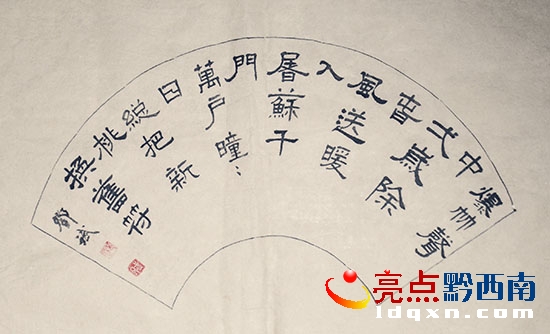 爆竹聲
中
弌歲除
旾
風送暖
入
屠蘇千
門
萬戶曈〻
日
總把新
桃
換舊符
鄧斌
亮点黔西南
ldqxn.com